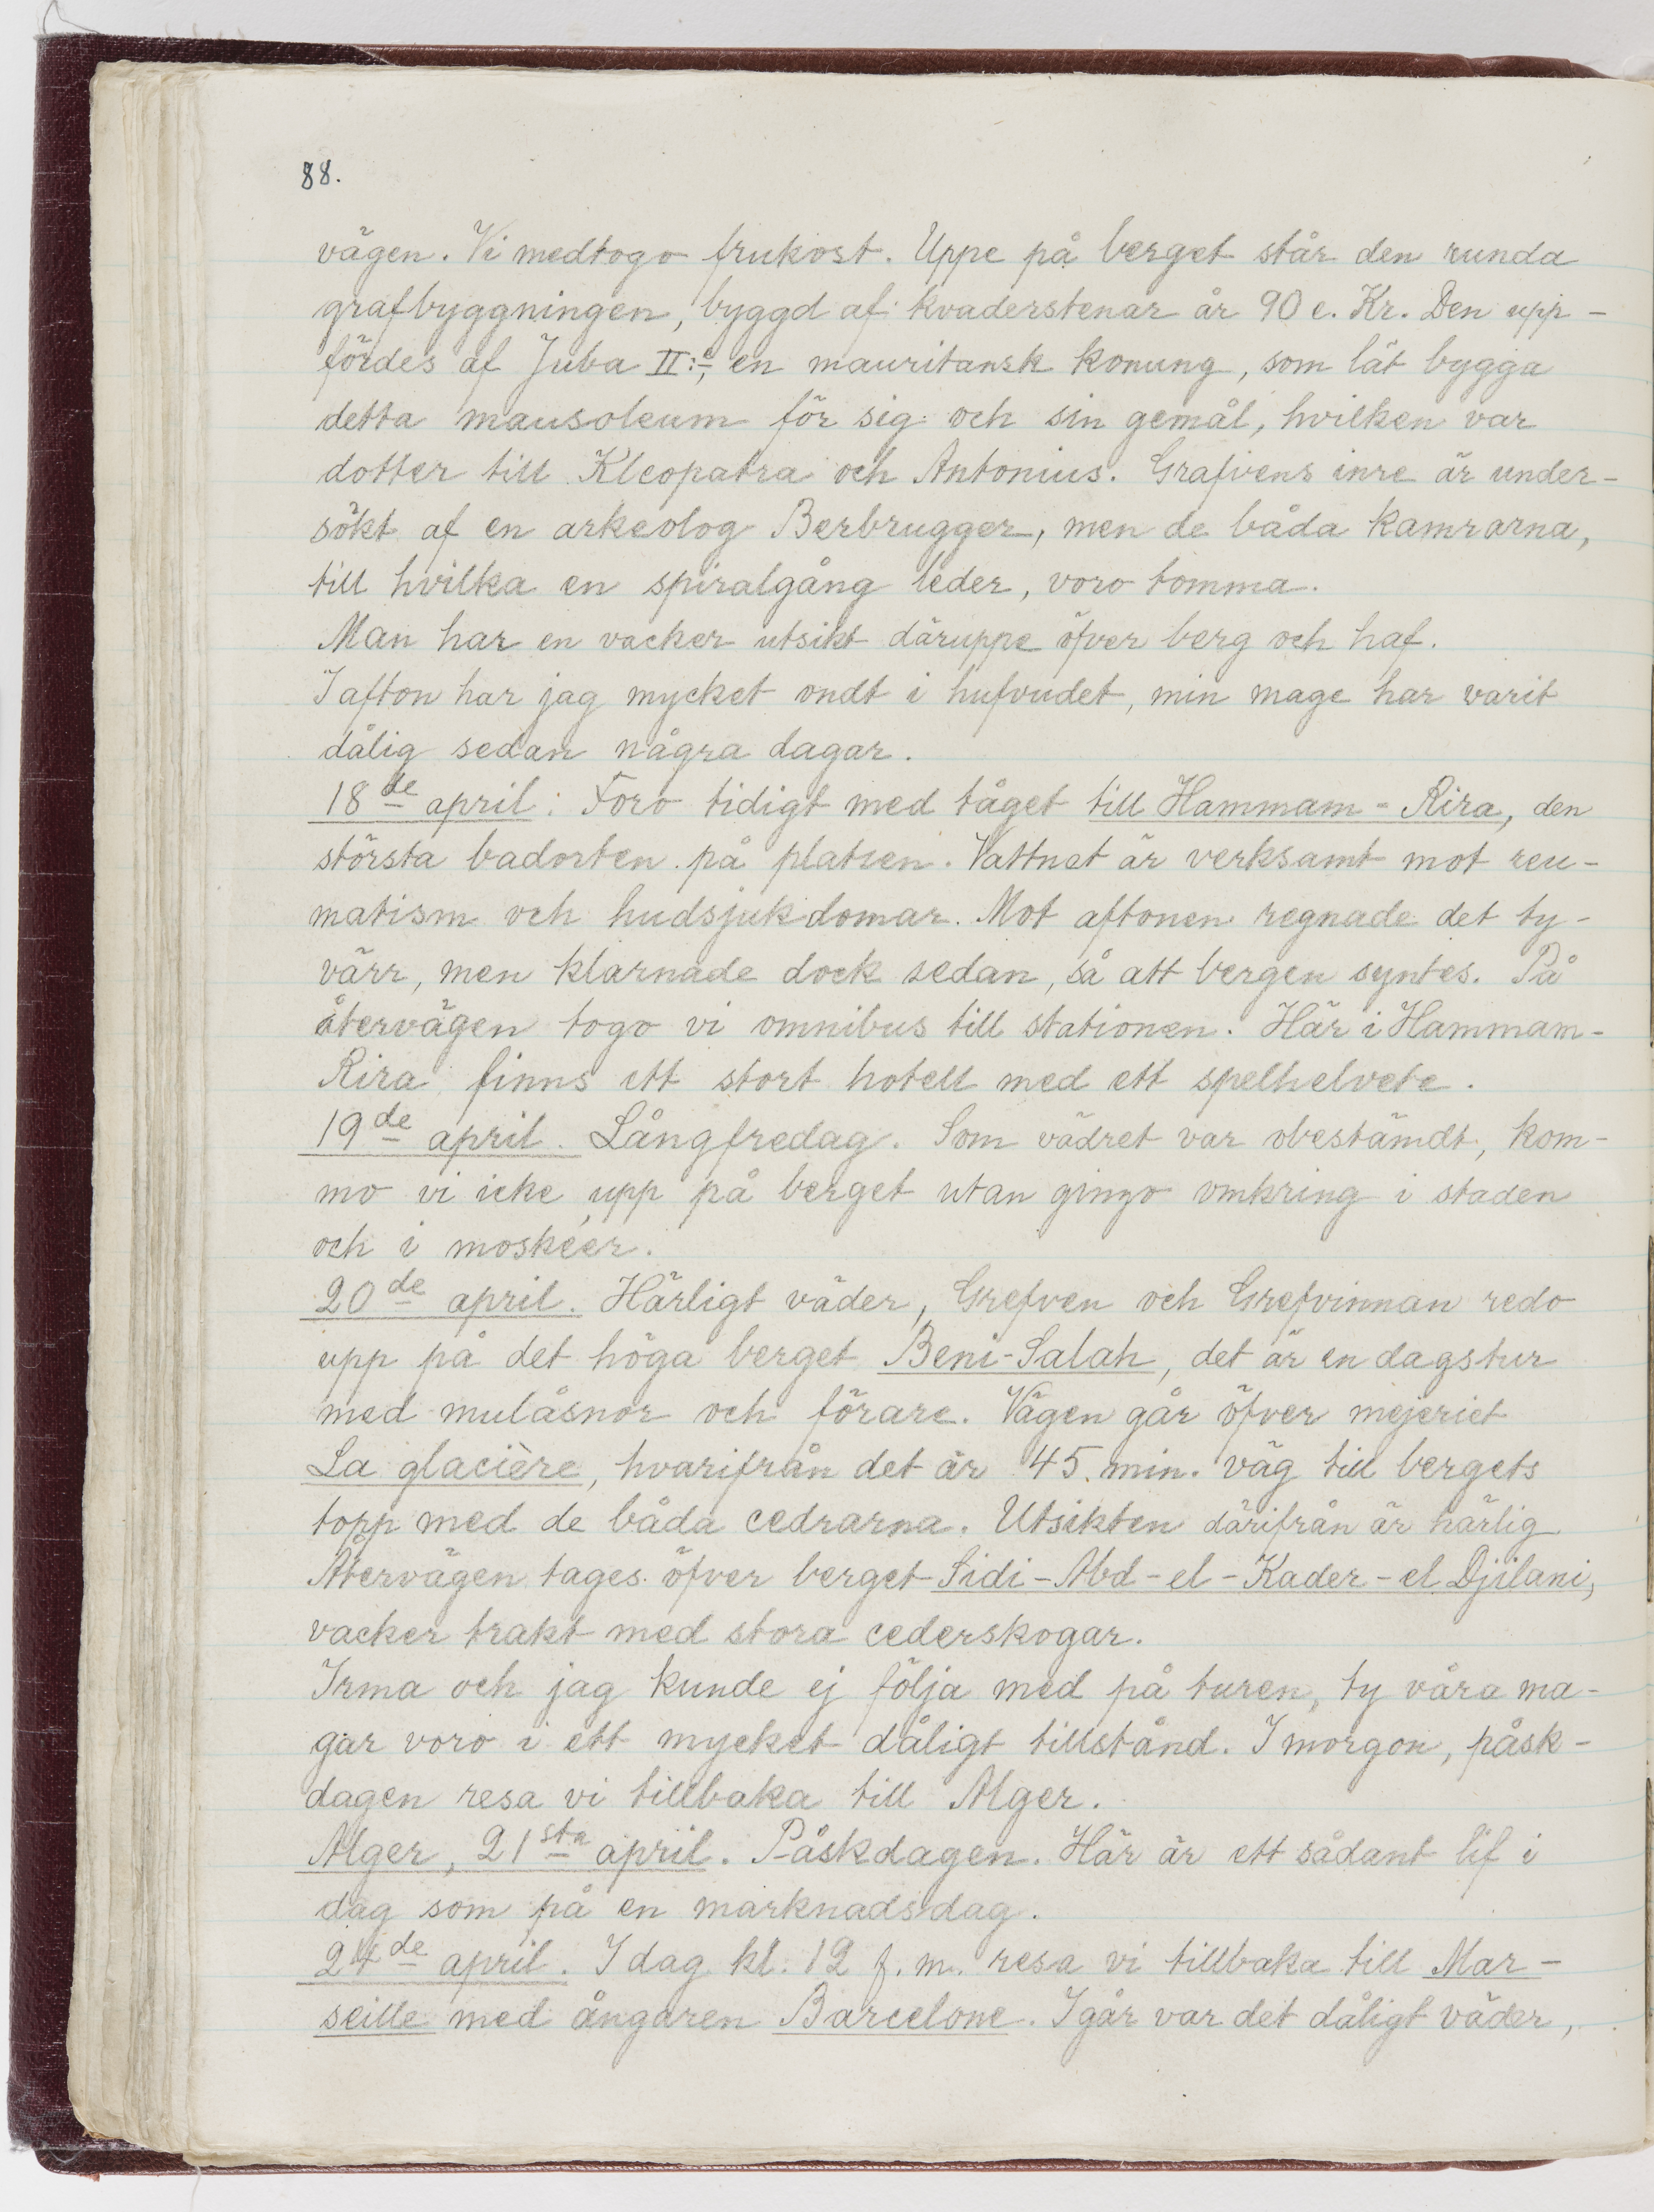 88.
vägen. Vi medtogo frukost. Uppe på berget står den runda
grafbyggningen, byggd af kvaderstenar år 90 e. Kr. Den upp-
fördes af Juba II:e, en mauritansk konung, som lät bygga
detta mausoleum för sig och sin gemål, hvilken var
dotter till Kleopatra och Antonius. Grafvens inre är under-
sökt af en arkeolog Berbrugger, men de båda kamrarna,
till hvilka en spiralgång leder, voro tomma.
Man har en vacker utsikt däruppe öfver berg och haf.
I afton har jag mycket ondt i hufvudet, min mage har varit
dålig sedan några dagar.
18de april: Foro tidigt med tåget till Hammam-Rira, den
största badorten på platsen. Vattnet är verksamt mot reu-
matism och hudsjukdomar. Mot aftonen regnade det ty-
värr, men klarnade dock sedan, så att bergen syntes. På
återvägen togo vi omnibus till stationen. Här i Hammam-
Rira finns ett stort hotell med ett spelhelvete.
19de april. Långfredag. Som vädret var obestämdt, kom-
mo vi icke upp på berget utan gingo omkring i staden
och i moskéer.
20de april. Härligt väder, Grefven och Grefvinnan redo
upp på det höga berget Beni-Salah, det är en dagstur
med mulåsnor och förare. Vägen går öfver mejeriet
La glacière, hvarifrån det är 45 min. väg till bergets
topp med de båda cedrarna. Utsikten därifrån är härlig
Återvägen tages öfver berget Sidi-Abd-el-Kader-el Djilani,
vacker trakt med stora cederskogar.
Irma och jag kunde ej följa med på turen, ty våra ma-
gar voro i ett mycket dåligt tillstånd. I morgon, påsk-
dagen resa vi tillbaka till Alger.
Alger, 21sta april. Påskdagen. Här är ett sådant lif i
dag som på en marknadsdag.
24de april. I dag kl. 12 f. m. resa vi tillbaka till Mar-
seille med ångaren Barcelone. I går var det dåligt väder,